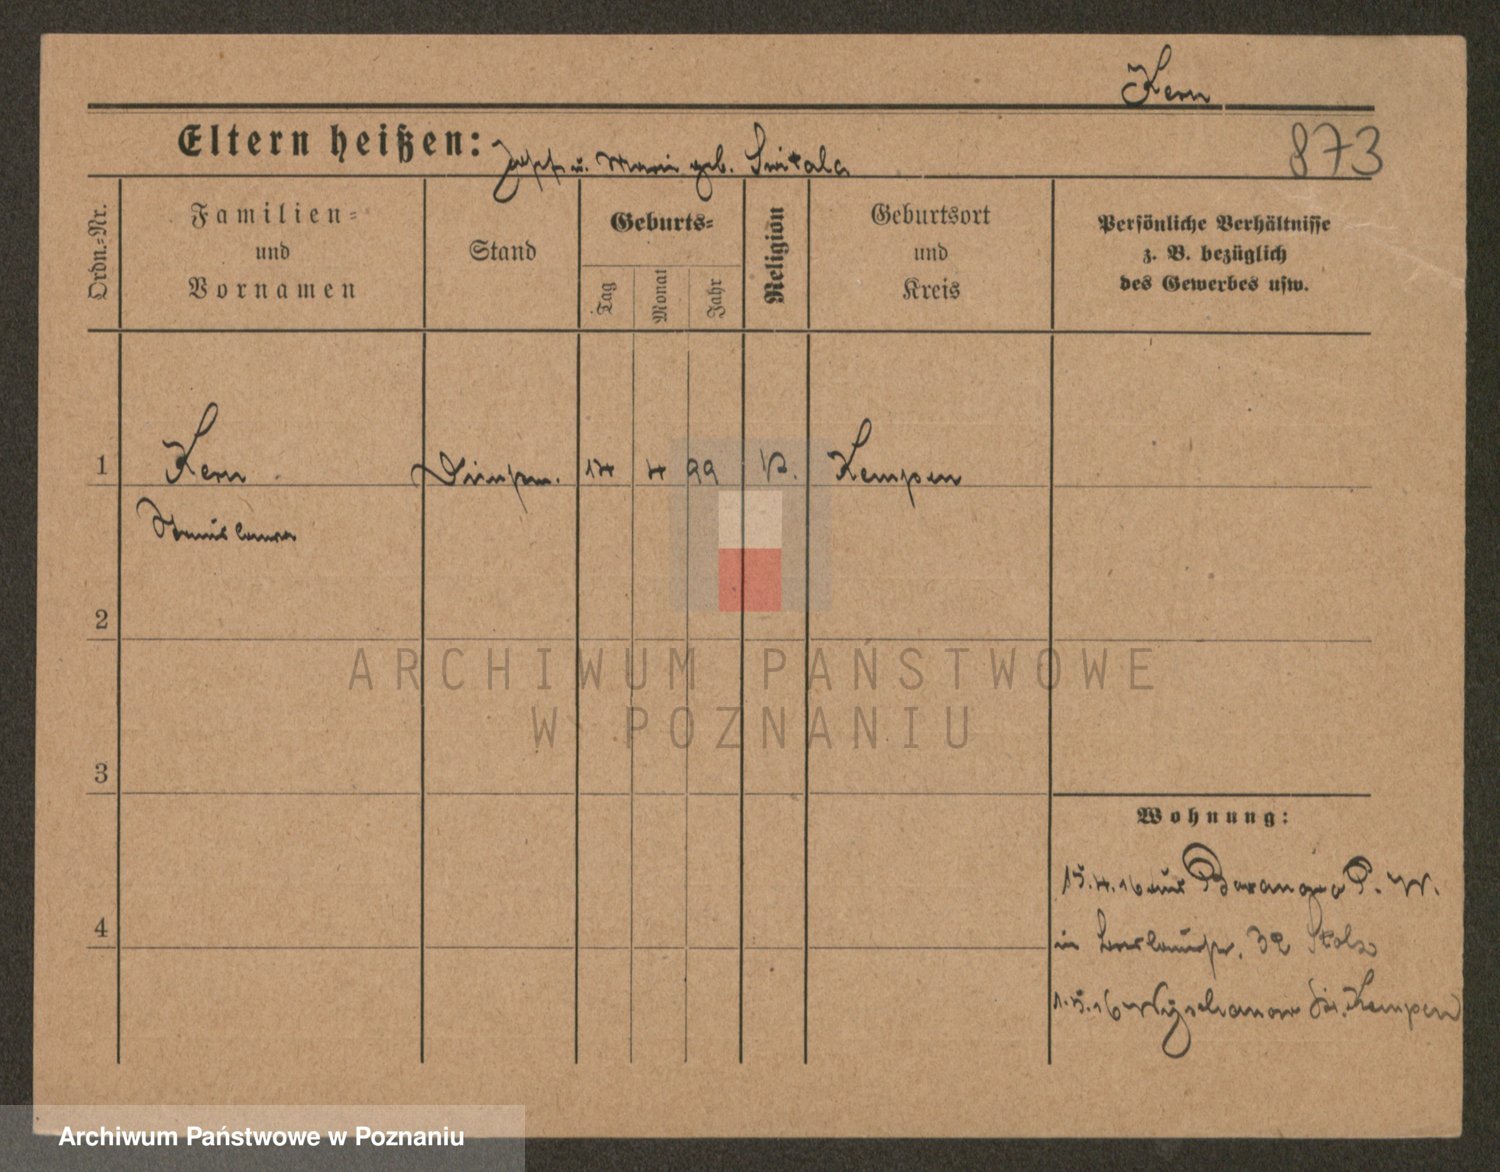 Kern
Eltern heißen: Josef u. Marie geb. Smitala
873
Ordn.=Nr.
Familien=
und
Vornamen
Stand
Geburts=
Tag
Monat
Jahr
Religion
Geburtsort
und
Kreis
Persönliche Verhältnisse
z. B. bezüglich
des Gewerbes usw.
1
Kern
14 4 99
Kempen
Stanislawa
2
ARCHIWUM PAŃSTWOWE
W POZNANIU
3
Wohnung:
15.4.16 aus Baranow P. W.
4
in Breslauerstr. 32
1.5.16 Kr. Kempen
Archiwum Państwowe w Poznaniu